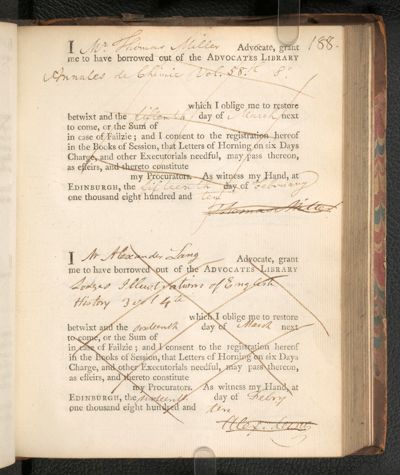 188.
I Mr. Thomas Miller Advocate, grant
me to have borrowed out of the ADVOCATES LIBRARY
Annales de Chimie Vol. 58th 8º
which I oblige me to restore
betwixt and the fifteenth day of March next
to come, or the Sum of
in case of Failzie; and I consent to the registration hereof
in the Books of Session, that Letters of Horning on six Days
Charge, and other Executorials needful, may pass thereon,
as effeirs, and thereto constitute
my Procurators. As witness my Hand, at
EDINBURGH, the fifteenth day of February
one thousand eight hundred and ten
Thomas Miller
I Mr Alexander Lang Advocate, grant
me to have borrowed out of the ADVOCATES LIBRARY
Lodges Illustrations of English
History 3 vol 4to
which I oblige me to restore
betwixt and the sixteenth day of March next
to come, or the Sum of
in case of Failzie; and I consent to the registration hereof
in the Books of Session, that Letters of Horning on six Days
Charge, and other Executorials needful, may pass thereon,
as effeirs, and thereto constitute
my Procurators. As witness my Hand, at
EDINBURGH, the sixteenth day of Febry
one thousand eight hundred and ten
Alex. Lang